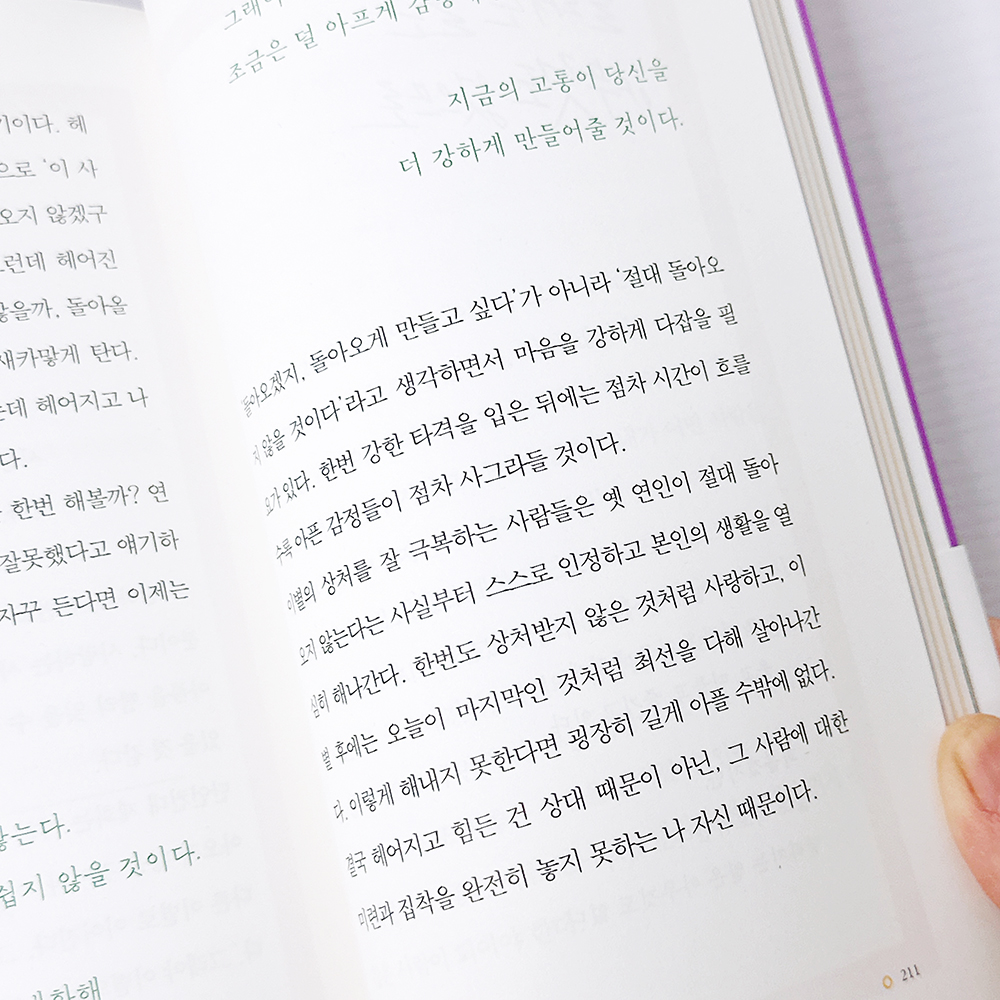 기이다. 헤
으로 '이 사
오지 않겠구
그런데 헤어진
않을까, 돌아올
새카맣게 탄다.
는데 헤어지고 나
다.
한번 해볼까? 연
잘못했다고 얘기하
자꾸 든다면 이제는
않는다.
쉽지 않을 것이다.
조금은 덜 아프게
지금의 고통이 당신을
더 강하게 만들어줄 것이다.
'돌아오겠지, 돌아오게 만들고 싶다'가 아니라 '절대 돌아오
지 않을 것이다'라고 생각하면서 마음을 강하게 다잡을 필
요가 있다. 한번 강한 타격을 입은 뒤에는 점차 시간이 흐를
수록 아픈 감정들이 점차 사그라들 것이다.
이별의 상처를 잘 극복하는 사람들은 옛 연인이 절대 돌아
오지 않는다는 사실부터 스스로 인정하고 본인의 생활을 열
심히 해나간다. 한번도 상처받지 않은 것처럼 사랑하고, 이
별 후에는 오늘이 마지막인 것처럼 최선을 다해 살아나간
다. 이렇게 해내지 못한다면 굉장히 길게 아플 수밖에 없다.
결국 헤어지고 힘든 건 상대 때문이 아닌, 그 사람에 대한
미련과 집착을 완전히 놓지 못하는 나 자신 때문이다.
211